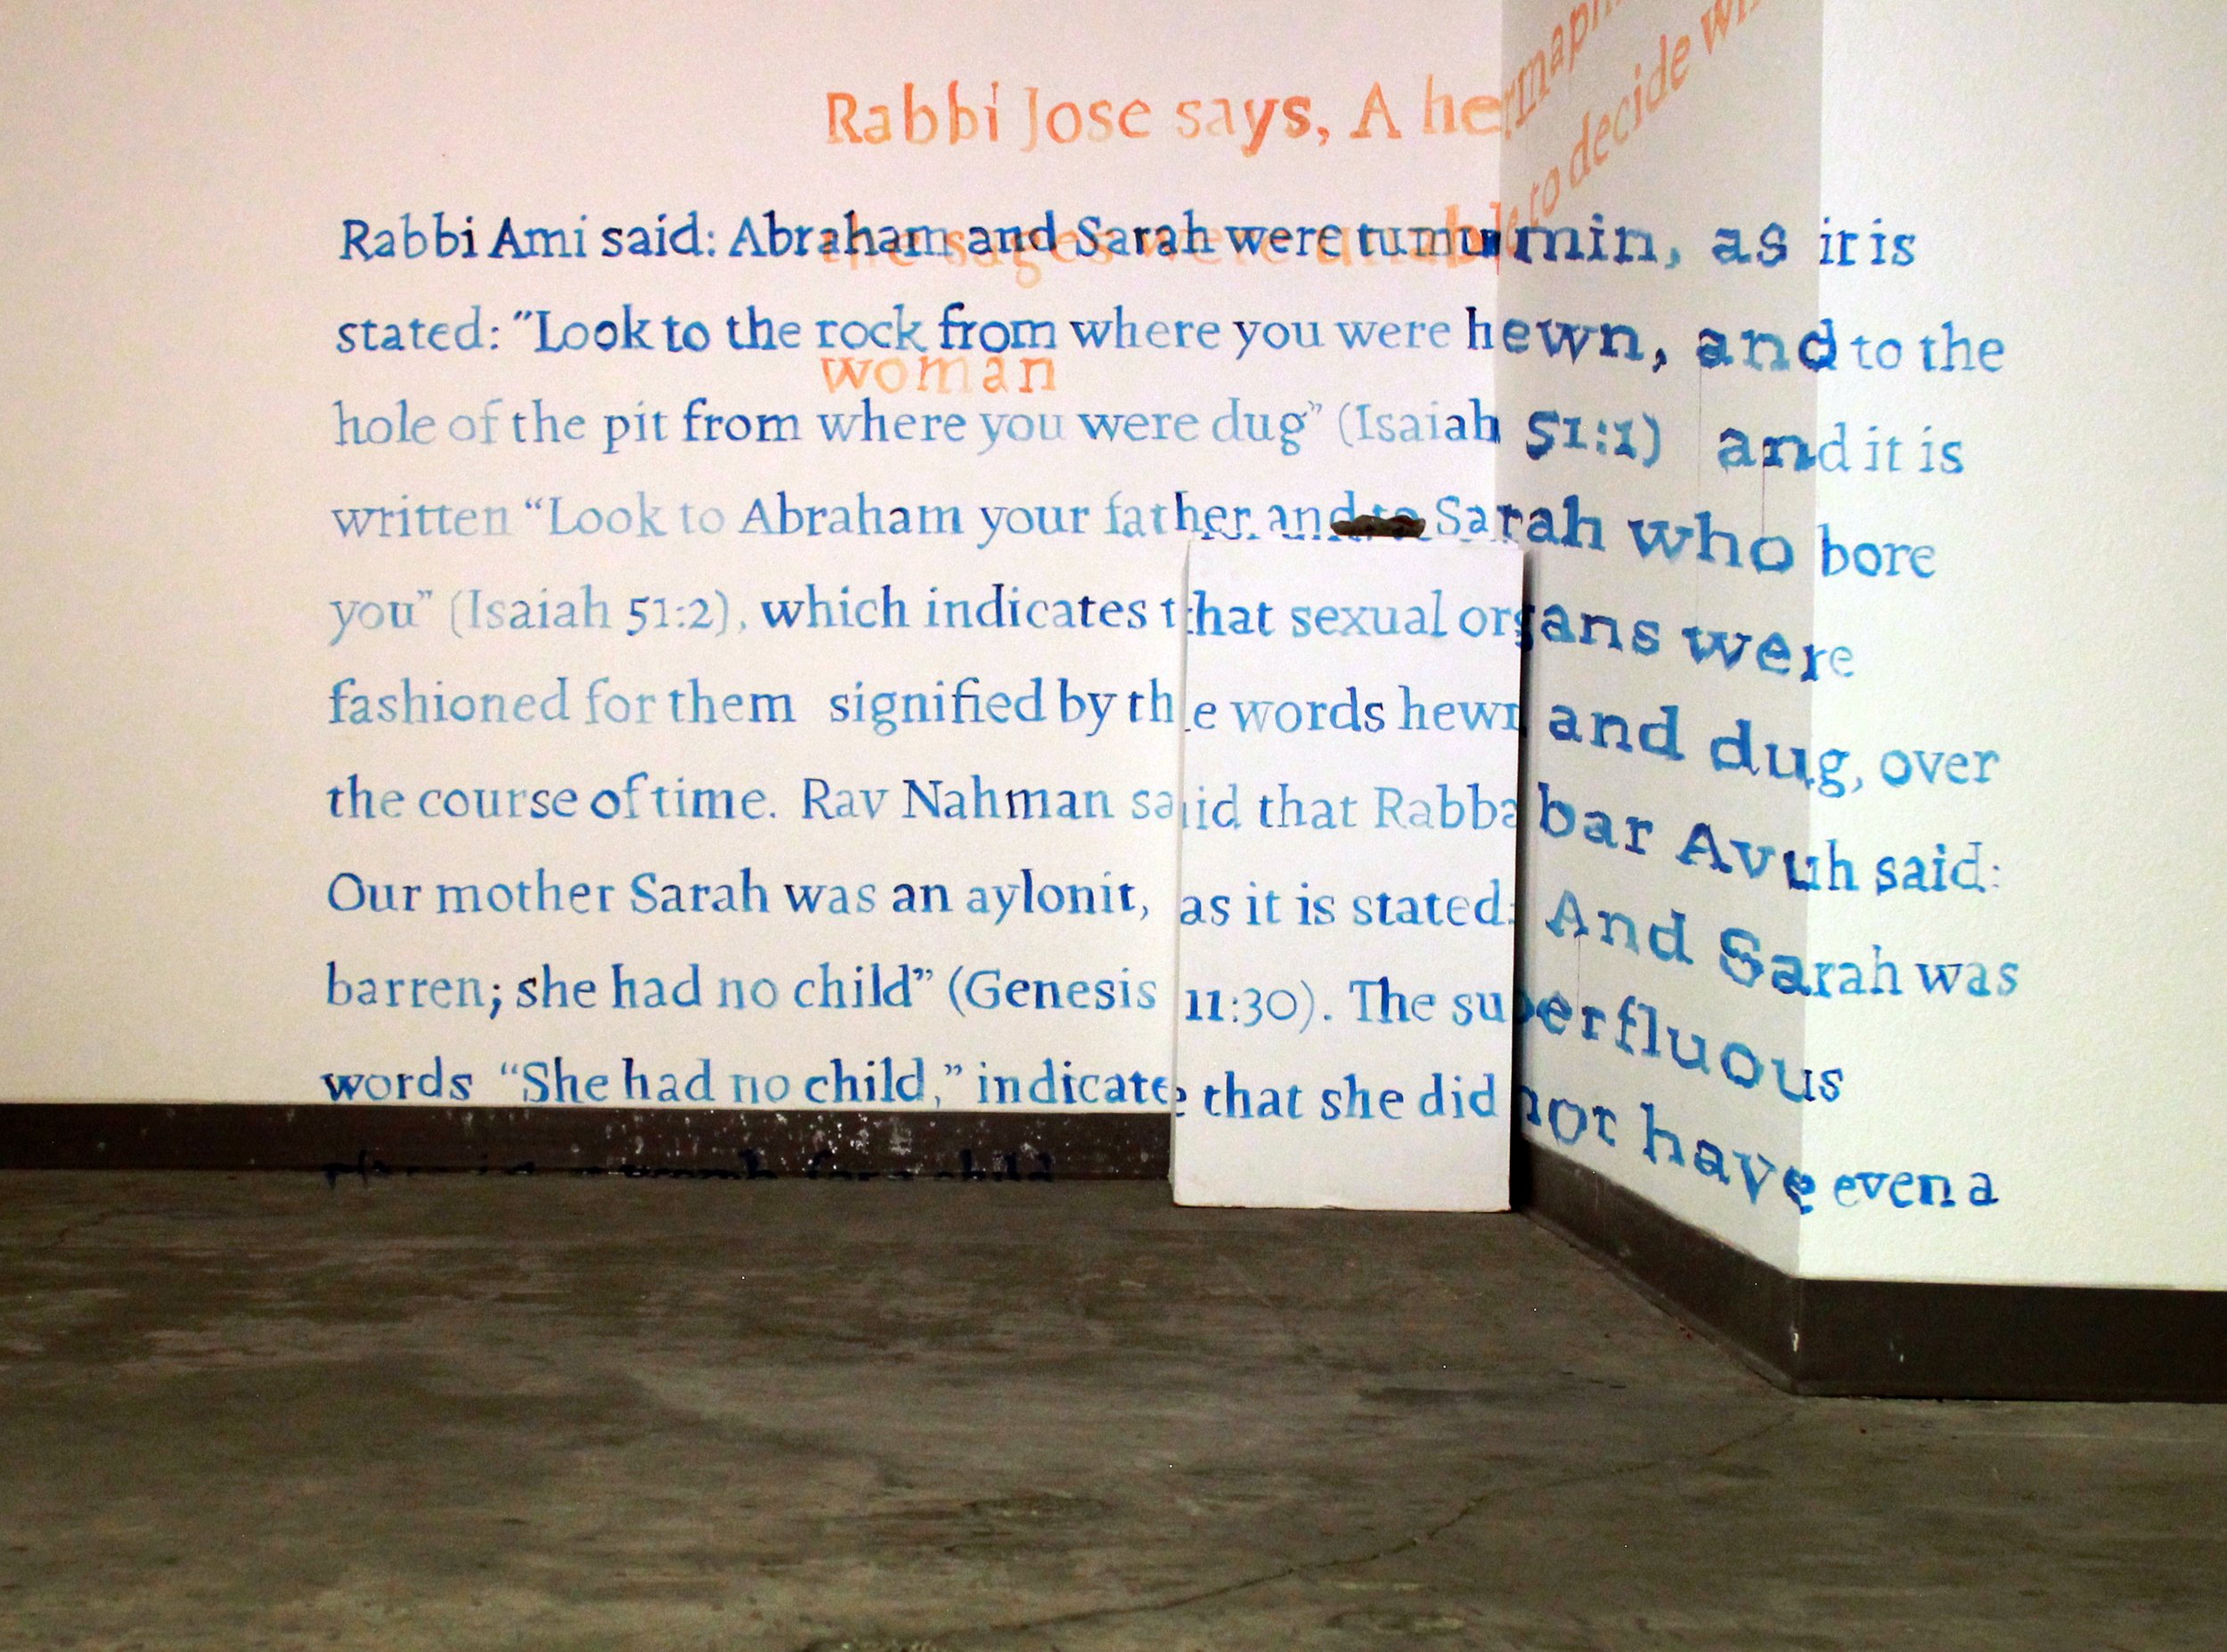 Rabbi Jose says, A hermaph
the sages were unable to decide wh
woman
Rabbi Ami said: Abraham and Sarah were tumumin, as it is
stated: "Look to the rock from where you were hewn, and to the
hole of the pit from where you were dug" (Isaiah 51:1) and it is
written "Look to Abraham your father and to Sarah who bore
you" (Isaiah 51:2), which indicates that sexual organs were
fashioned for them signified by the words hewn and dug, over
the course of time. Rav Nahman said that Rabba bar Avuh said:
Our mother Sarah was an aylonit, as it is stated: And Sarah was
barren; she had no child" (Genesis 11:30). The superfluous
words "She had no child," indicate that she did not have even a
place in a womb for a child